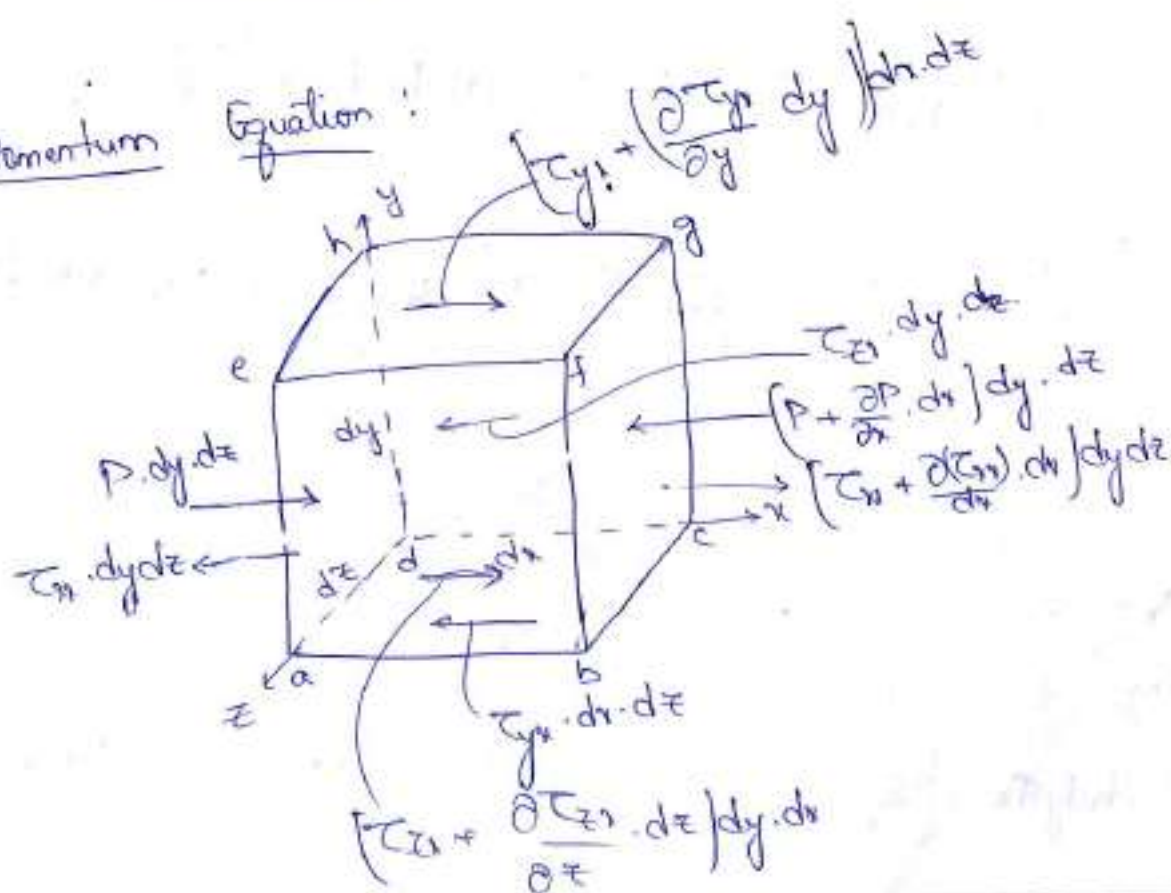 omentum Equation :
[τyx + (∂τyx/∂y dy)]dx.dz
y
h
g
τzx.dy.dz
e
f
[P + ∂P/∂x . dx]dy.dz
dy
P.dy.dz
x
[τxx + ∂(τxx)/dx . dx]dydz
c
τxx.dydz
dz
d
dx
a
b
z
τyx.dx.dz
[τzx + ∂τzx/∂z . dz]dy.dx